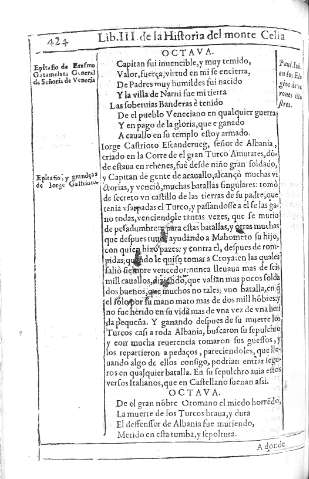 424
Lib.III. de la Historia del monte Celia
OCTAVA.
Epitafio de Erasmo
Gatamelata General
de Señoria de Venecia
Capitan fui inuencible, y muy temido,
Valor, fuerça, virtud en mi se encierra,
De Padres muy humildes fui nacido
Y la villa de Narni fue mi tierra
Las soberuias Banderas è tenido
De el pueblo Veneciano en qualquier guerra
Y en pago de la gloria, que e ganado
A cauallo en su templo estoy armado.
Epitafio, y grandeza
de Iorge Castrioto
Iorge Castrioto Escanderueg, señor de Albania,
criado en la Corte de el gran Turco Amurates, dõ-
de estauo en rehenes, fue desde niño gran soldado,
y Capitan de gente de acauallo, alcançò muchas vi-
ctorias, y venciò, muchas batallas singulares: tomò
de secreto vn castillo de las tierras de su padre, que
tenia vsurpadas el Turco, y passandosse a el se las ga-
no todas, venciendole tantas vezes, que se murio
de pesadumbre: para estas batallas, y otras muchas
que despues tuuo ayudando a Mahometo su hijo,
con quien hizo pazes: y contra el, despues de rom-
pidas, quando le quiso tomar a Croya en las quales
saliò siempre vencedor: nunca lleuaua mas de seis
mill cauallos, diziendo, que valian mas pocos solda
dos buenos, que muchos no tales: vuo batalla, en q̃
el solo por su mano mato mas de dos mill hõbres; y
no fue herido en su vida mas de vna vez de vna heri
da pequeña. Y ganando despues de su muerte los
Turcos casi a toda Albania, buscaron su sepulchro
y con mucha reuerencia tomaron sus guessos, y
los repartieron a pedaços, pareciendoles, que lle-
uando algo de ellos consigo, podrian entrar segu-
ros en qualquier batalla. En su sepulchro auia estos
versos Italianos, que en Castellano suenan assi.
OCTAVA.
De el gran nõbre Otomano el miedo horrẽdo,
La muerte de los Turcos braua, y dura
El deffensor de Albania fue muriendo,
Metido en esta tumba, y sepoltura.
A donde